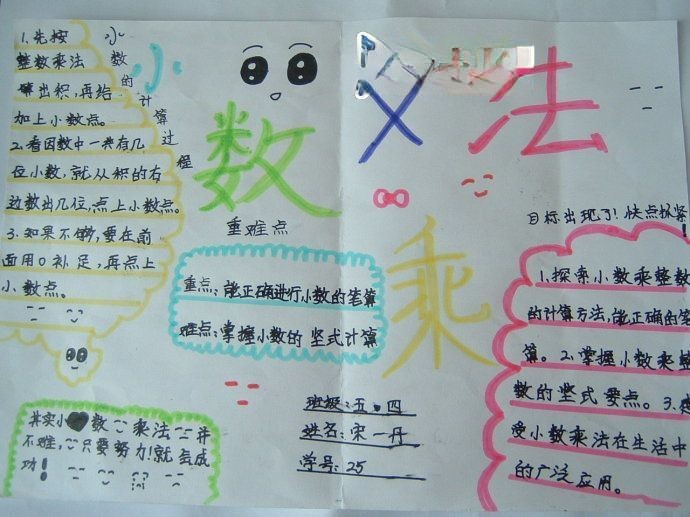 小数的计算过程
1.先按
整数乘法
算出积,再给
加上小数点。
2.看因数中一共有几
位小数,就从积的右
边数出几位,点上小数点。
3.如果不够,要在前
面用0补足,再点上
小数点。
小
数
乘
法
重难点
重点:能正确进行小数的笔算
难点:掌握小数的竖式计算
班级:五.四
姓名:宋一丹
学号:25
目标出现了!快点抓紧!
1.探索小数乘整数
的计算方法,能正确的笔
算。2.掌握小数乘整
数的竖式要点。3.感
受小数乘法在生活中
的广泛应用。
其实小数乘法并
不难,只要努力!就会成
功!